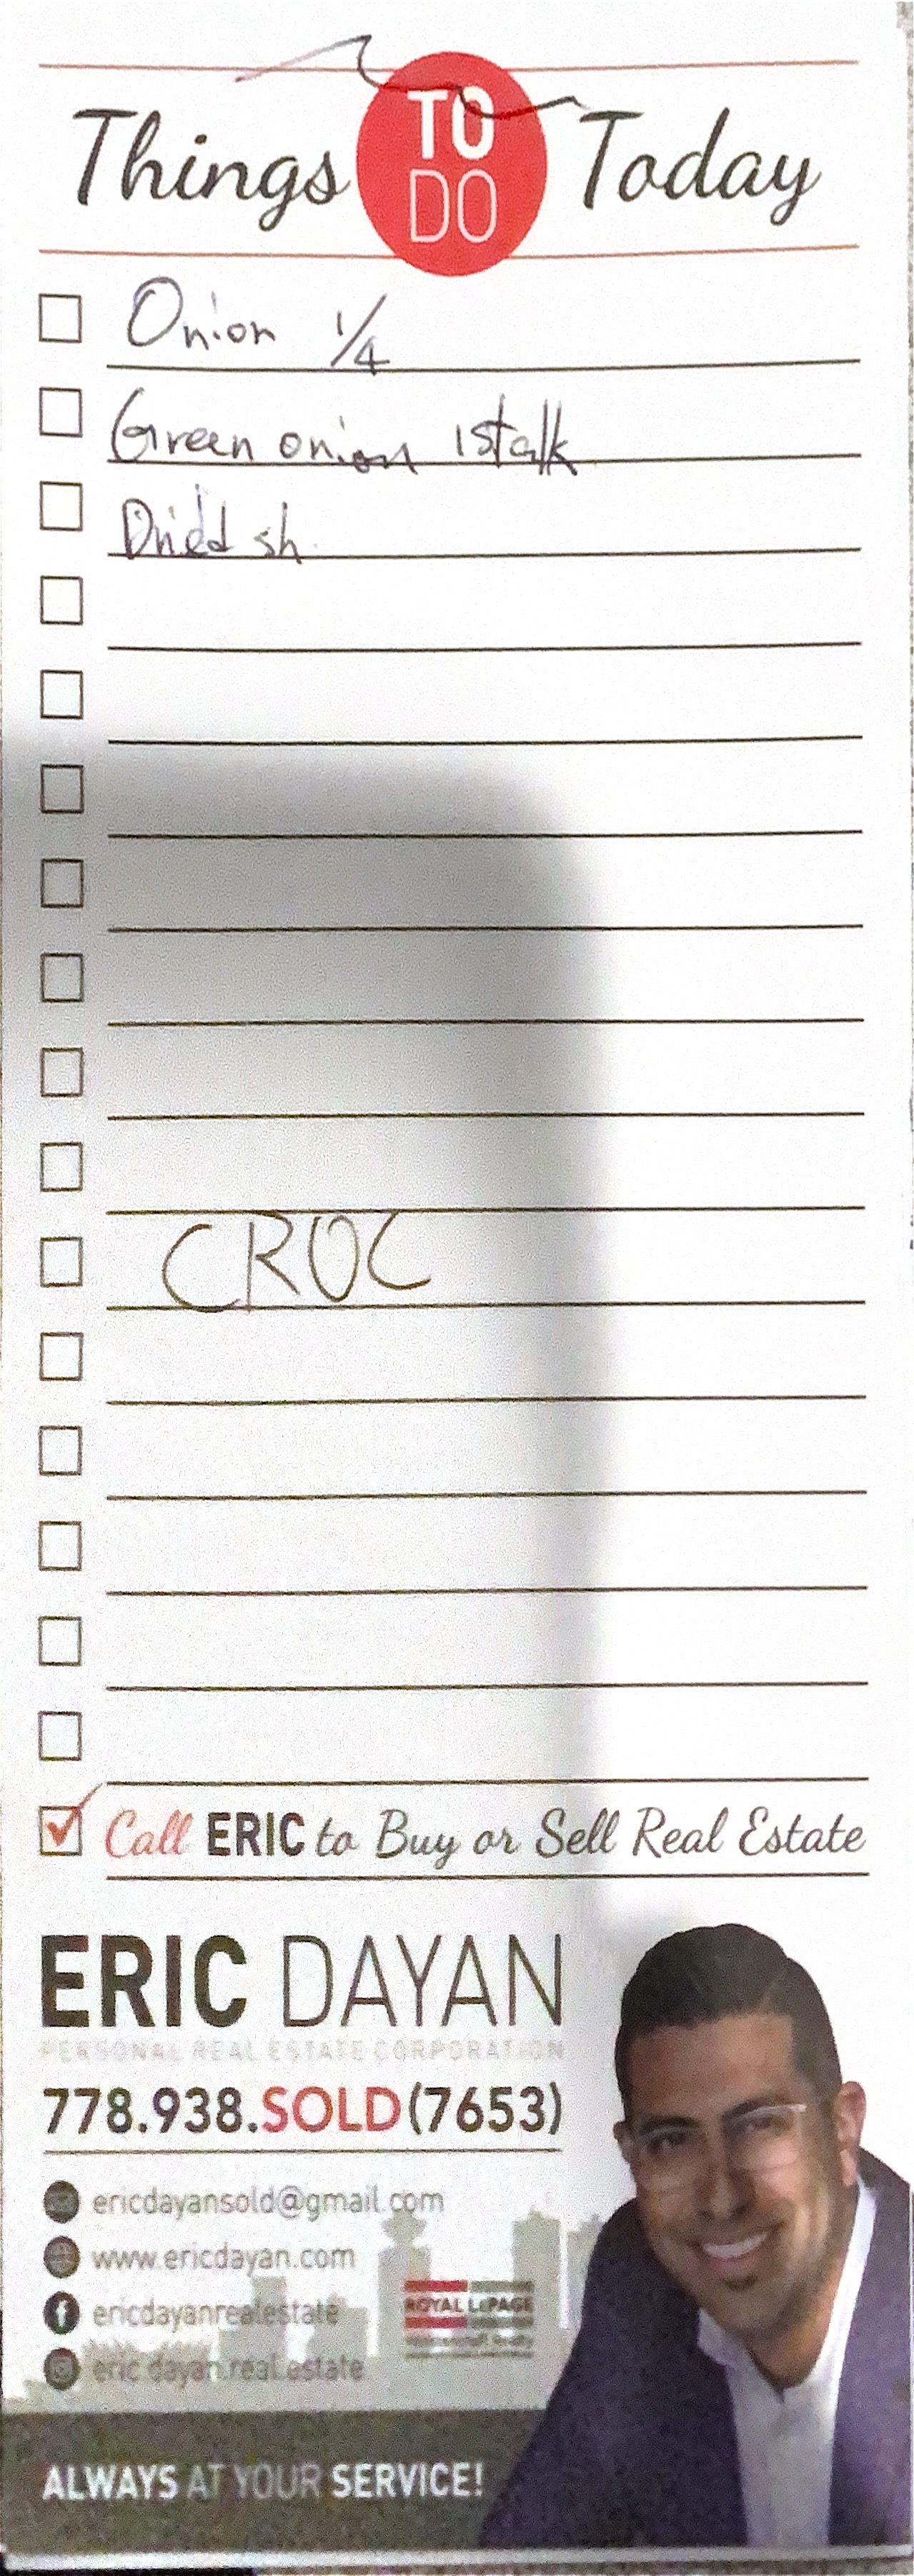 Things TO DO Today
Onion 1/4
Green onion 1 stalk
Dried sh
CROC
Call ERIC to Buy or Sell Real Estate
ERIC DAYAN
PERSONAL REAL ESTATE CORPORATION
778.938.SOLD(7653)
ericdayansold@gmail.com
www.ericdayan.com
ericdayanrealestate
eric.dayan.real.estate
ROYAL LEPAGE
ALWAYS AT YOUR SERVICE!